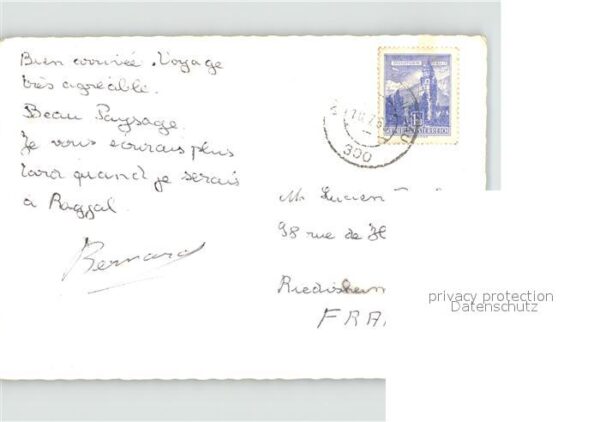 Bien arrivée. Voyage
très agréable.
Beau Paysage.
Je vous écrirais plus
tard quand je serais
à Raggal.
Bernard
ÖSTERREICH
300
Mr Lucien
98 rue de H
Riedisheim
FRA
privacy protection
Datenschutz